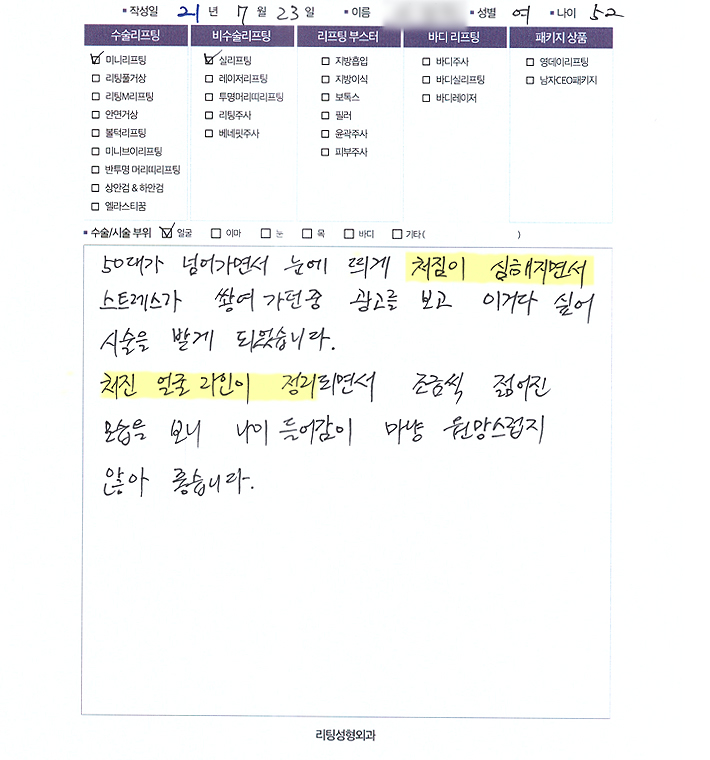 ▪작성일 21 년 7 월 23 일 ▪이름 ▪성별 여 ▪나이 52
수술리프팅 비수술리프팅 리프팅 부스터 바디 리프팅 패키지 상품
☑ 미니리프팅 ☑ 실리프팅 □ 지방흡입 □ 바디주사 □ 영데이리프팅
□ 리팅풀거상 □ 레이저리프팅 □ 지방이식 □ 바디실리프팅 □ 남자CEO패키지
□ 리팅M리프팅 □ 투명머리띠리프팅 □ 보톡스 □ 바디레이저
□ 안면거상 □ 리팅주사 □ 필러
□ 볼턱리프팅 □ 베네핏주사 □ 윤곽주사
□ 미니브이리프팅 □ 피부주사
□ 반투명 머리띠리프팅
□ 상안검 & 하안검
□ 엘라스티꿈
▪수술/시술 부위 ☑ 얼굴 □ 이마 □ 눈 □ 목 □ 바디 □ 기타( )
50대가 넘어가면서 눈에 띄게 처짐이 심해지면서
스트레스가 쌓여 가던중 광고를 보고 이거다 싶어
시술을 받게 되었습니다.
처진 얼굴 라인이 정리되면서 조금씩 젊어진
모습을 보니 나이 들어감이 마냥 원망스럽지
않아 좋습니다.
리팅성형외과